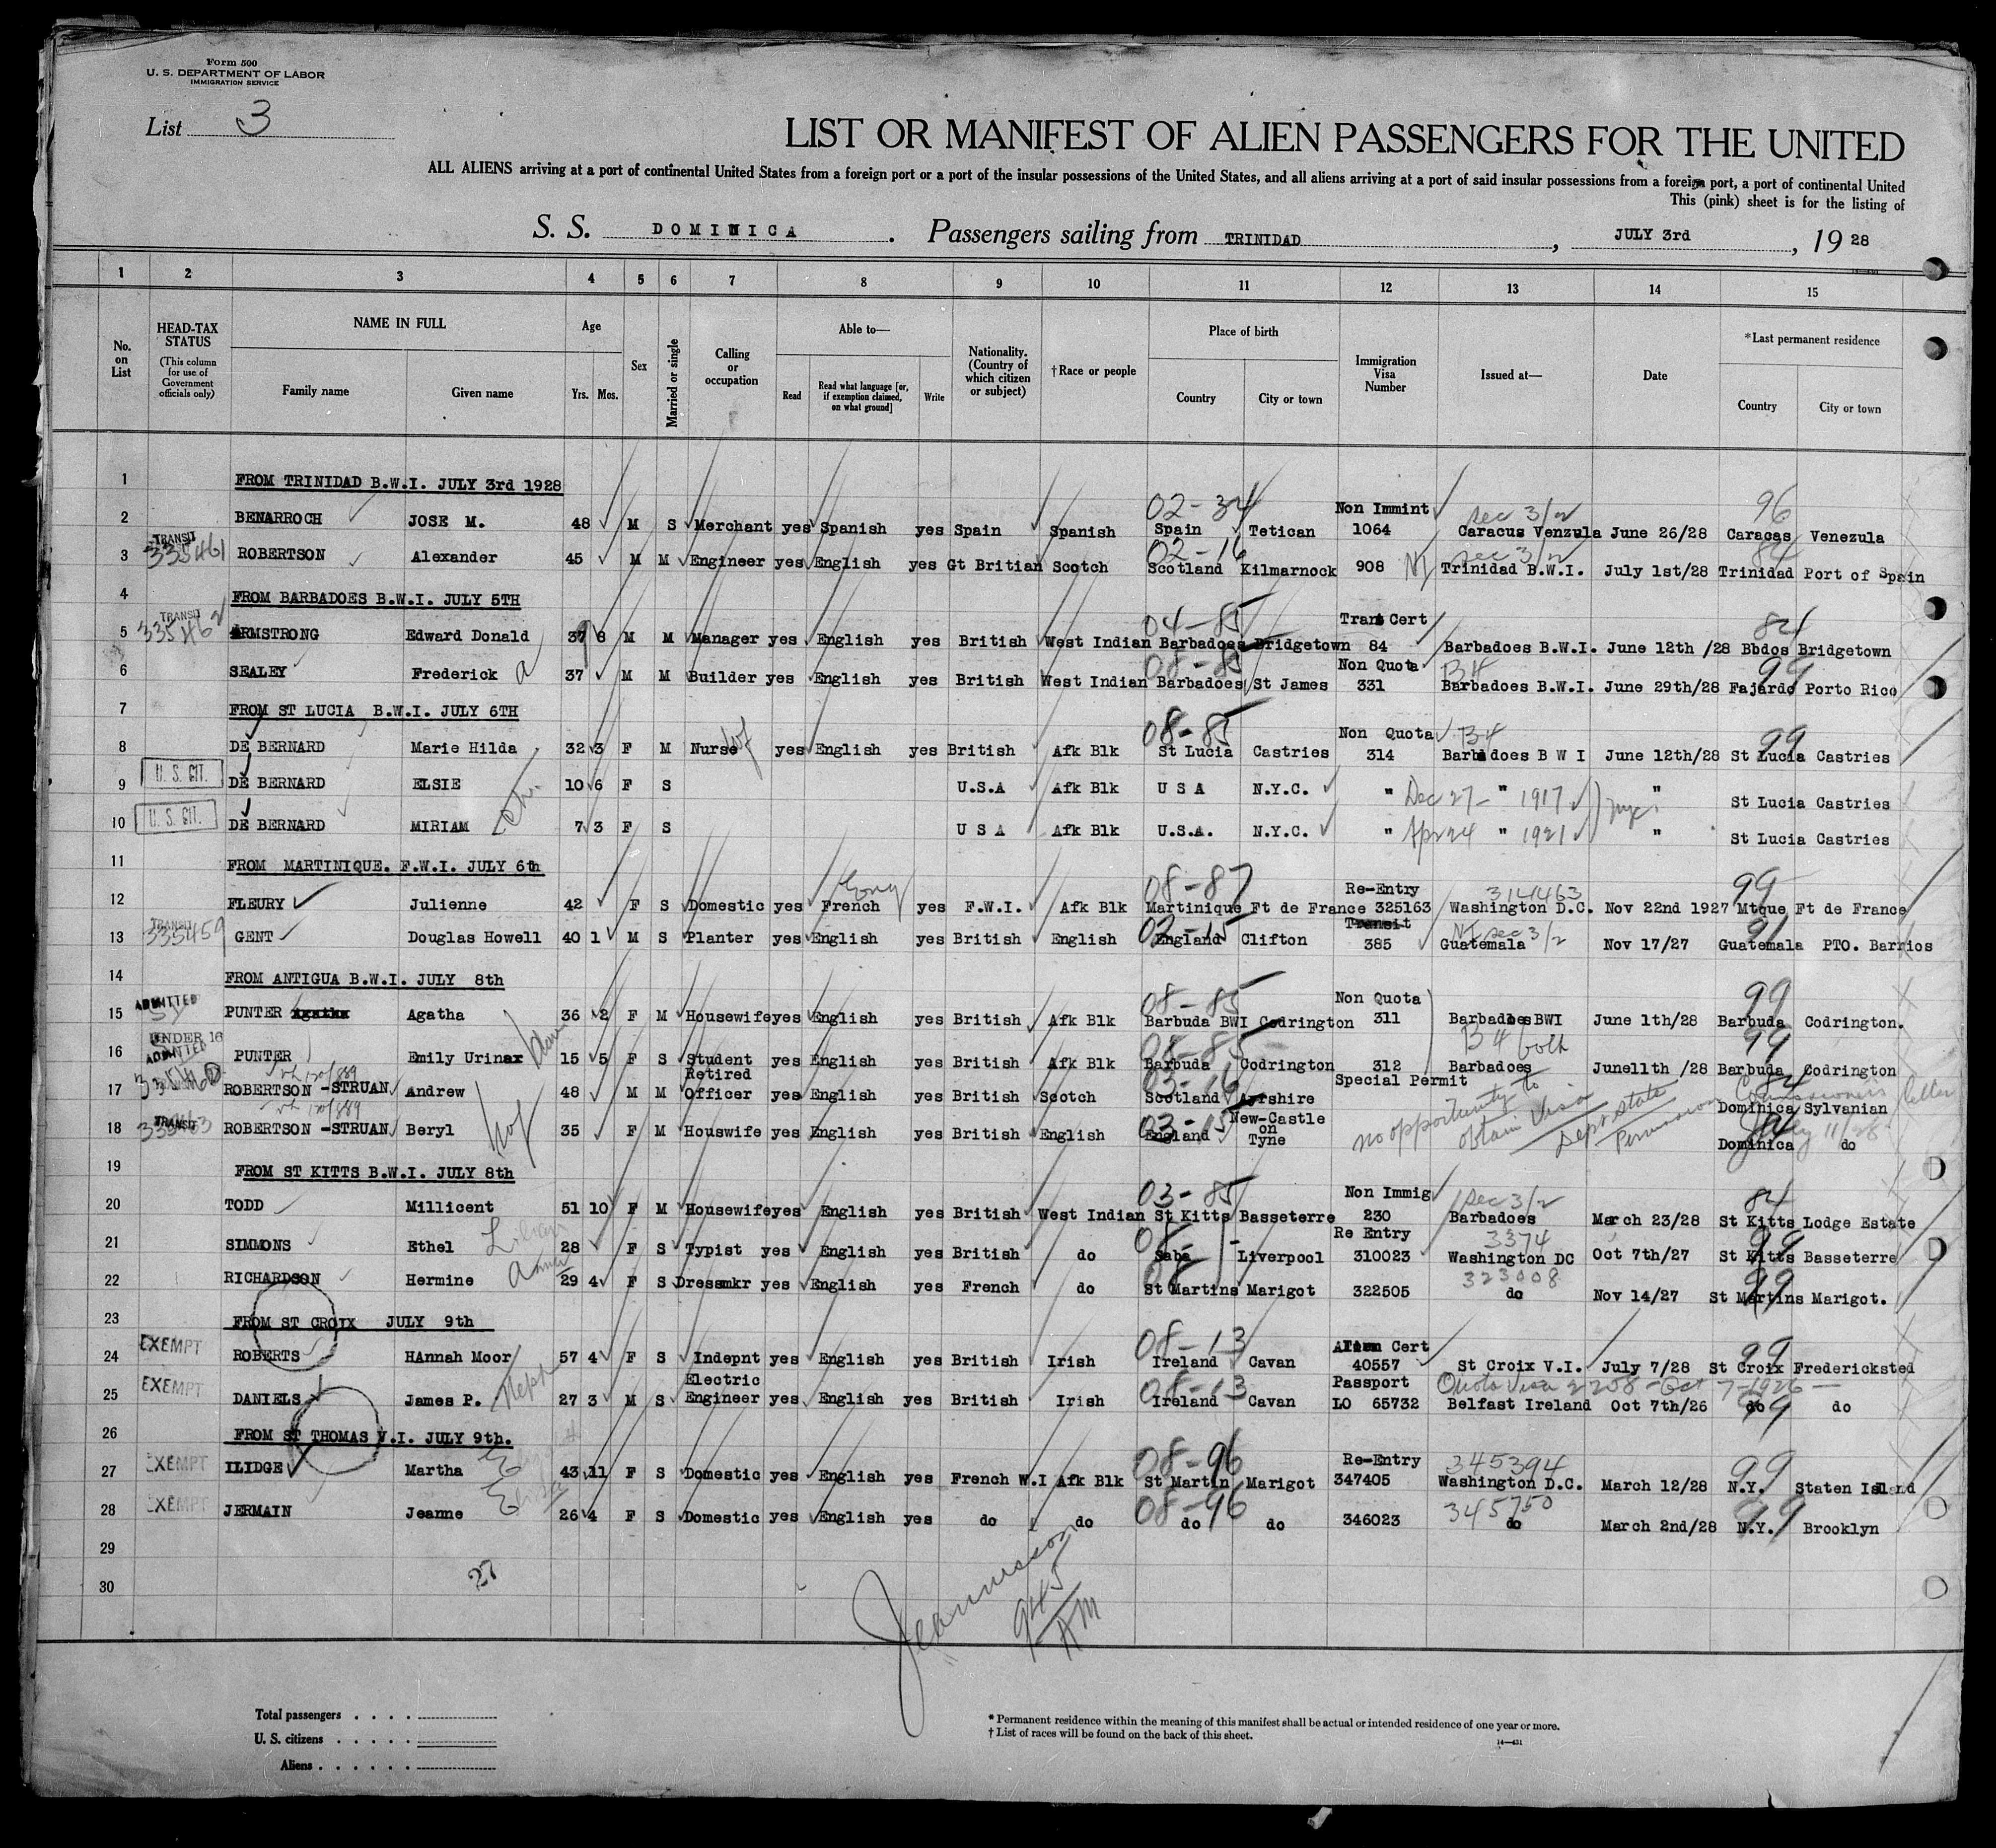 Form 500
U. S. DEPARTMENT OF LABOR
IMMIGRATION SERVICE
List 3
LIST OR MANIFEST OF ALIEN PASSENGERS FOR THE UNITED
ALL ALIENS arriving at a port of continental United States from a foreign port or a port of the insular possessions of the United States, and all aliens arriving at a port of said insular possessions from a foreign port, a port of continental United
This (pink) sheet is for the listing of
S. S. DOMINICA. Passengers sailing from TRINIDAD, JULY 3rd, 19 28
1 2 3 4 5 6 7 8 9 10 11 12 13 14 15
No. on List
HEAD-TAX STATUS
(This column for use of Government officials only)
NAME IN FULL
Family name Given name
Age
Yrs. Mos.
Sex
Married or single
Calling or occupation
Able to—
Read Read what language [or, if exemption claimed, on what ground] Write
Nationality. (Country of which citizen or subject)
†Race or people
Place of birth
Country City or town
Immigration Visa Number
Issued at—
Date
*Last permanent residence
Country City or town
1 FROM TRINIDAD B.W.I. JULY 3rd 1928
02-34 Non Immint Sec 3/2 96
2 BENARROCH JOSE M. 48 M S Merchant yes Spanish yes Spain Spanish Spain Tetican 1064 Caracus Venzula June 26/28 Caracas Venezula
TRANSIT 335461 02-16 Sec 3/2 84
3 ROBERTSON Alexander 45 M M Engineer yes English yes Gt Britian Scotch Scotland Kilmarnock 908 Trinidad B.W.I. July 1st/28 Trinidad Port of Spain
4 FROM BARBADOES B.W.I. JULY 5TH
TRANSIT 335462 04-85 Tran Cert 84
5 ARMSTRONG Edward Donald 37 8 M M Manager yes English yes British West Indian Barbadoes Bridgetown 84 Barbadoes B.W.I. June 12th /28 Bbdos Bridgetown
08-85 Non Quota B4 99
6 SEALEY Frederick 37 M M Builder yes English yes British West Indian Barbadoes St James 331 Barbadoes B.W.I. June 29th/28 Fajardo Porto Rico
7 FROM ST LUCIA B.W.I. JULY 6TH
08-85 Non Quota B4 99
8 DE BERNARD Marie Hilda 32 3 F M Nurse yes English yes British Afk Blk St Lucia Castries 314 Barbadoes B W I June 12th/28 St Lucia Castries
U. S. CIT.
9 DE BERNARD ELSIE 10 6 F S U.S.A Afk Blk U S A N.Y.C. " Dec 27- " 1917 " St Lucia Castries
U. S. CIT.
10 DE BERNARD MIRIAM 7 3 F S U S A Afk Blk U.S.A. N.Y.C. " Apr 24 " 1921 " St Lucia Castries
11 FROM MARTINIQUE. F.W.I. JULY 6th
08-87 Re-Entry 3141463 99
12 FLEURY Julienne 42 F S Domestic yes French yes F.W.I. Afk Blk Martinique Ft de France 325163 Washington D.C. Nov 22nd 1927 Mtque Ft de France
TRANSIT 335459 02-15 Transit Sec 3/2 91
13 GENT Douglas Howell 40 1 M S Planter yes English yes British English England Clifton 385 Guatemala Nov 17/27 Guatemala PTO. Barrios
14 FROM ANTIGUA B.W.I. JULY 8th
ADMITTED 08-85 Non Quota 99
15 PUNTER Agatha 36 2 F M Housewife yes English yes British Afk Blk Barbuda BWI Codrington 311 Barbadoes BWI June 1th/28 Barbuda Codrington.
UNDER 16 ADMITTED 08-85 B4 both 99
16 PUNTER Emily Urinar 15 5 F S Student yes English yes British Afk Blk Barbuda Codrington 312 Barbadoes June11th /28 Barbuda Codrington
03-16 Special Permit 84
17 ROBERTSON -STRUAN Andrew 48 M M Retired Officer yes English yes British Scotch Scotland Ayrshire no opportunity to obtain visa Dept State Permission Commissioners letter Dominica Sylvanian
TRANSIT 335463 03-15 84 July 11/28
18 ROBERTSON -STRUAN Beryl 35 F M Houswife yes English yes British English England New-Castle on Tyne Dominica do
19 FROM ST KITTS B.W.I. JULY 8th
03-85 Non Immig Sec 3/2 84
20 TODD Millicent 51 10 F M Housewife yes English yes British West Indian St Kitts Basseterre 230 Barbadoes March 23/28 St Kitts Lodge Estate
Re Entry 3374 99
21 SIMMONS Ethel 28 F S Typist yes English yes British do Saba Liverpool 310023 Washington DC Oct 7th/27 St Kitts Basseterre
323008 99
22 RICHARDSON Hermine 29 4 F S Dressmkr yes English yes French do St Martins Marigot 322505 do Nov 14/27 St Martins Marigot.
23 FROM ST CROIX JULY 9th
EXEMPT 08-13 Alien Cert 99
24 ROBERTS HAnnah Moor 57 4 F S Indepnt yes English yes British Irish Ireland Cavan 40557 St Croix V.I. July 7/28 St Croix Fredericksted
EXEMPT 08-13 Passport Quota Visa 2208 - Oct 7-1926 - 99
25 DANIELS James P. Neph 27 3 M S Electric Engineer yes English yes British Irish Ireland Cavan LO 65732 Belfast Ireland Oct 7th/26 do do
26 FROM ST THOMAS V.I. JULY 9th.
EXEMPT 08-96 Re-Entry 345394 99
27 ILIDGE Martha 43 11 F S Domestic yes English yes French W.I Afk Blk St Martin Marigot 347405 Washington D.C. March 12/28 N.Y. Staten Island
EXEMPT 08-96 345750 99
28 JERMAIN Jeanne 26 4 F S Domestic yes English yes do do do do 346023 do March 2nd/28 N.Y. Brooklyn
29
30
27
945 AM
Total passengers . . . .
U. S. citizens . . . . .
Aliens . . . . . .
* Permanent residence within the meaning of this manifest shall be actual or intended residence of one year or more.
† List of races will be found on the back of this sheet.
14—431